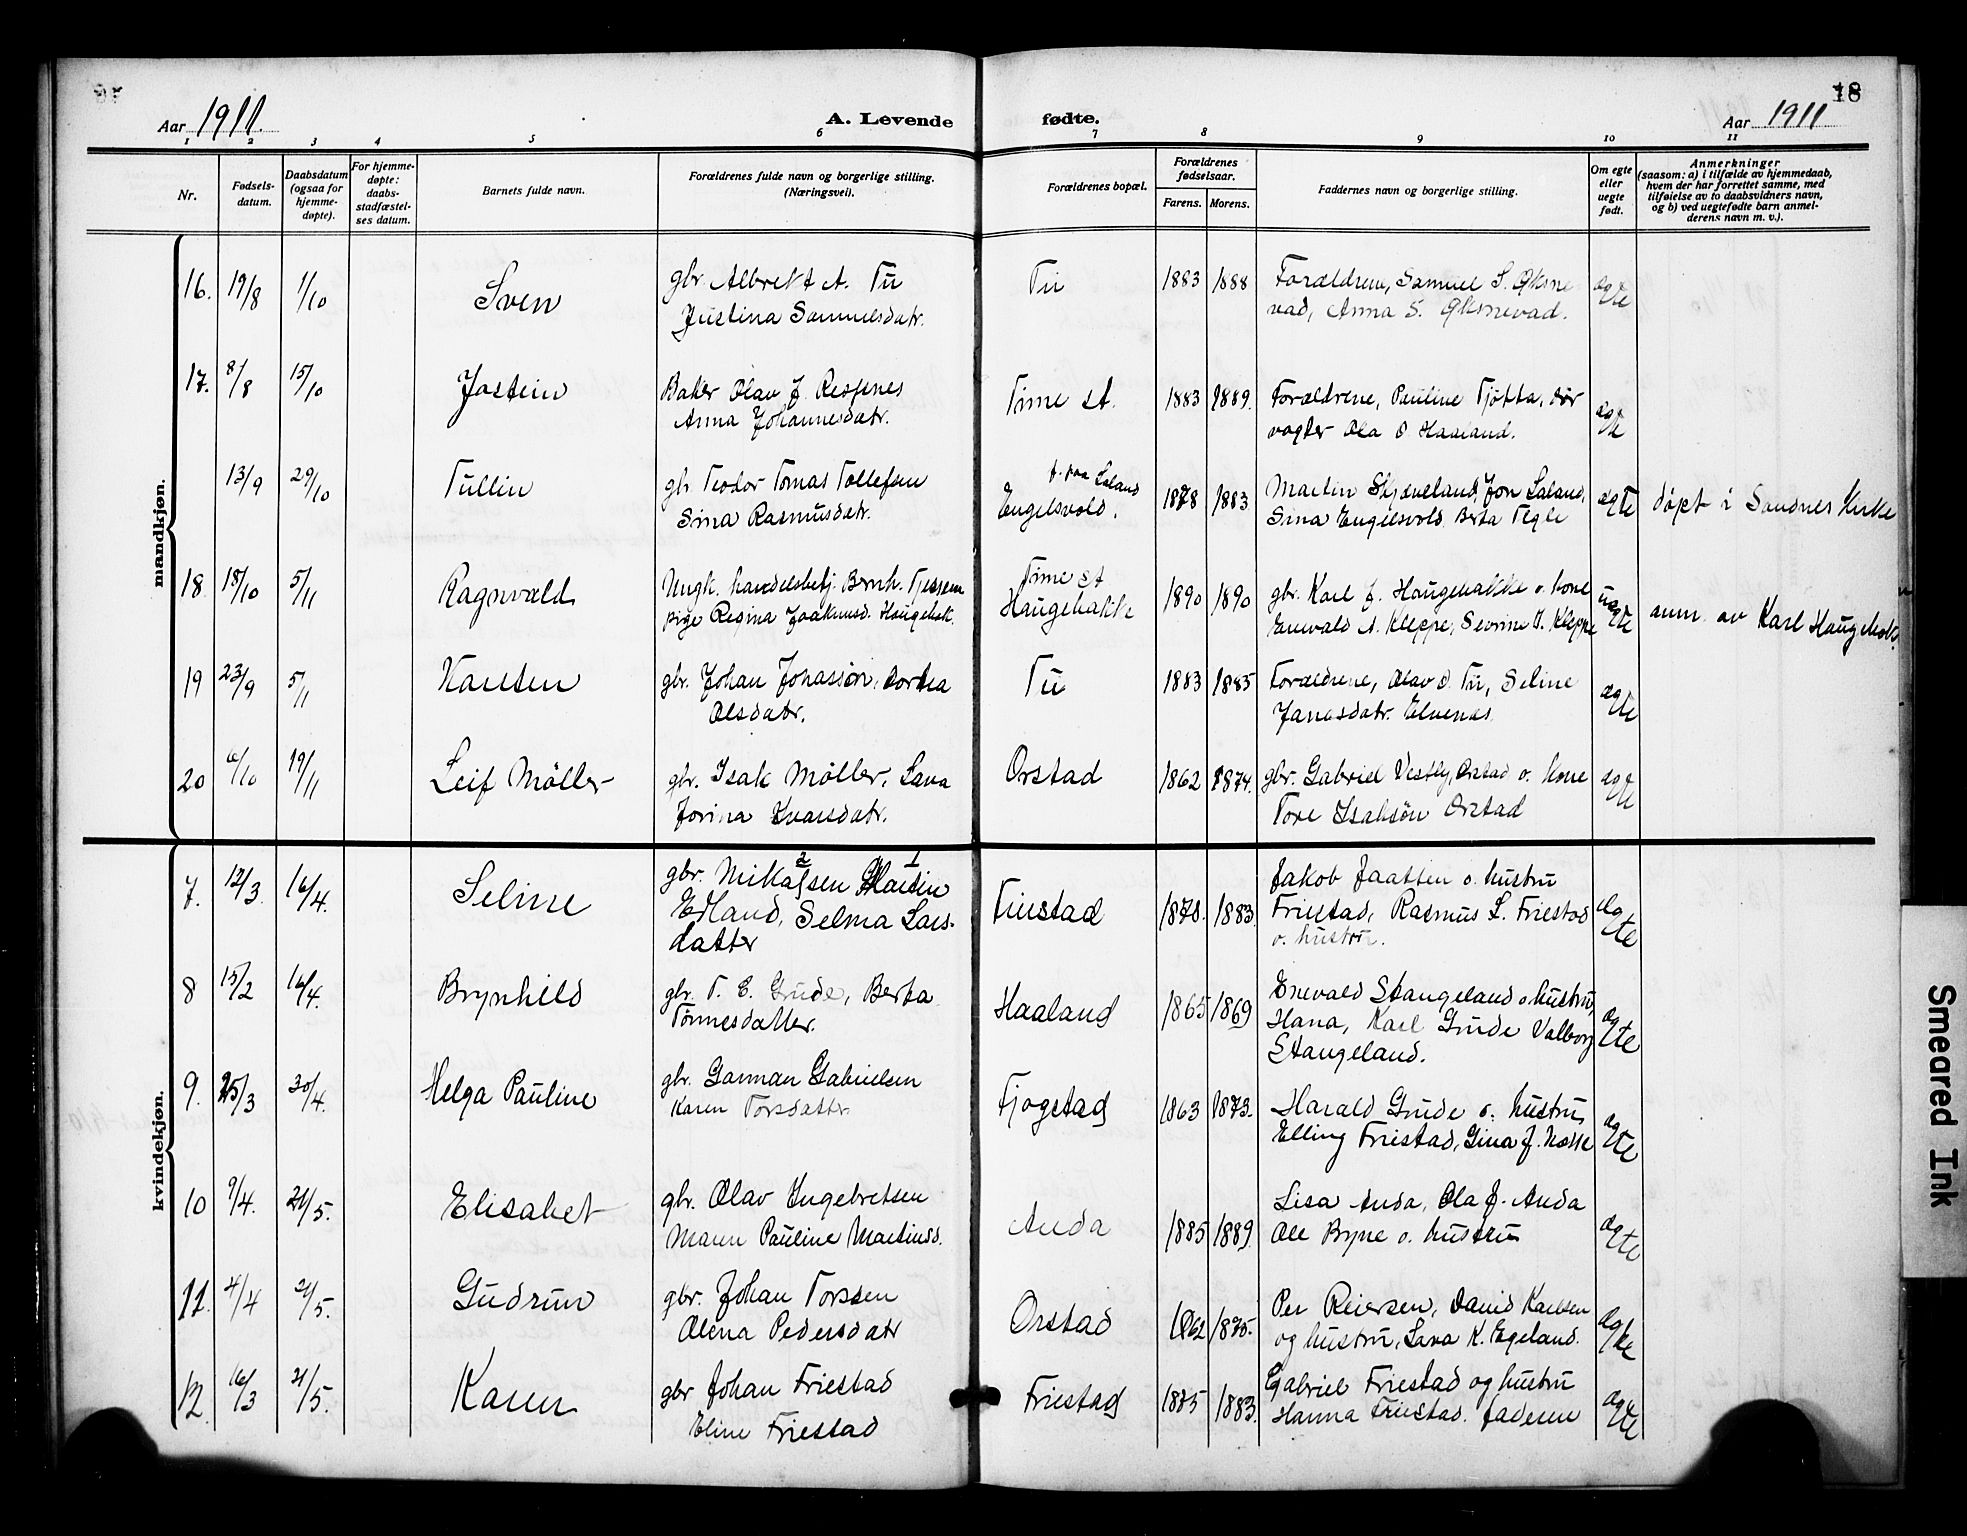 18
Aar 1911.
A. Levende fødte.
Aar 1911
1 2 3 4 5 6 7 8 9 10 11
Nr.
Fødsels-
datum.
Daabsdatum
(ogsaa for
hjemme-
døpte).
For hjemme-
døpte:
daabs-
stadfæstel-
ses datum.
Barnets fulde navn.
Forældrenes fulde navn og borgerlige stilling.
(Næringsvei).
Forældrenes bopæl.
Forældrenes
fødselsaar.
Farens. Morens.
Faddernes navn og borgerlige stilling.
Om egte
eller
uegte
født.
Anmerkninger
(saasom: a) i tilfælde av hjemmedaab,
hvem der har forrettet samme, med
tilføielse av to daabsvidners navn,
og b) ved uegtefødte barn anmel-
derens navn m. v.).
mandkjøn.
16. 19/8 1/10 Sven gbr. Albret A. Tu Tu 1883 1888 Forældrene, Samuel S. Øksne
Justina Samuelsdatr. vad, Anna S. Øksnevad. ægte
17. 8/8 15/10 Jostein Baker Olav J. Respenes Time st. 1883 1889. Forældrene, Pauline Tjøtta, dør
Anna Johannesdatr. vogter Ola O Haaland. ægte
13/9 29/10 Tullin gbr Teodor Tomas Tollefsen f. paa Laland 1878 1883 Martin Skjæveland, Jon Laland,
Sina Rasmusdatr. Engelsvold. Sina Engelsvold. Berta Tegle ægte døpt i Sandnes Kirke
18 18/10 5/11 Ragnvald Ungk. handelsbetj. Bernh. Time st 1890 1890 gbr. Karl J. Haugehakke o. kone
pige Regina Joakimsd. Haugehak. Haugehakke Enevald A. Kleppe, Sevrine J. Kleppe uægte anm. av Karl Haugehak.
19 23/9 5/11 Karsten gbr. Johan Jonassøn, Dortea Tu 1883 1885 Forældrene, Olav O. Tu, Seline
Olsdatr. Jonasdatr. Elvenes ægte
20 6/10 19/11 Leif Møller gbr. Isak Møller, Lava Orstad 1862 1874. gbr. Gabriel Vestly, Orstad o. kone
Jorina Ivarsdatr. Tore Isaksøn Orstad ægte
kvindekjøn.
7. 12/3. 16/4. Seline gbr. Mikalsen 2 Martin 1 Friestad 1878. 1883. Jakob Jaatten o. hustru
Edland, Selma Lars- Friestad, Rasmus L. Friestad ægte
datter o. hustru.
8 15/2 16/4. Brynhild gbr. T. E. Grude, Berta Haaland 1865 1869 Enevald Stangeland o. hustru,
Tønnesdatter. Hana, Karl Grude Valborg ægte
Stangeland.
9. 25/3 30/4. Helga Pauline gbr. Garman Gabrielsen Fjogstad 1863 1873. Harald Grude o. hustru
Karen Torsdatter. Elling Friestad, Gina J. Næsse ægte
10 9/4. 21/5. Elisabet gbr. Olav Ingebretsen Anda 1885 1889. Lisa Anda, Ola J. Anda
Maren Pauline Martinsd. Ole Bryne o. hustru ægte
11. 4/4 21/5. Gudrun gbr. Johan Torssen Orstad 1862 1875. Per Reiersen, David Karlsen
Olena Pedersdatr og hustru, Lava K. Egeland. ægte
12. 16/3 21/5. Karen gbr Johan Friestad Friestad 1885 1883. Gabriel Friestad og hustru
Eline Friestad Hanna Friestad. Faderen ægte
Smeared Ink